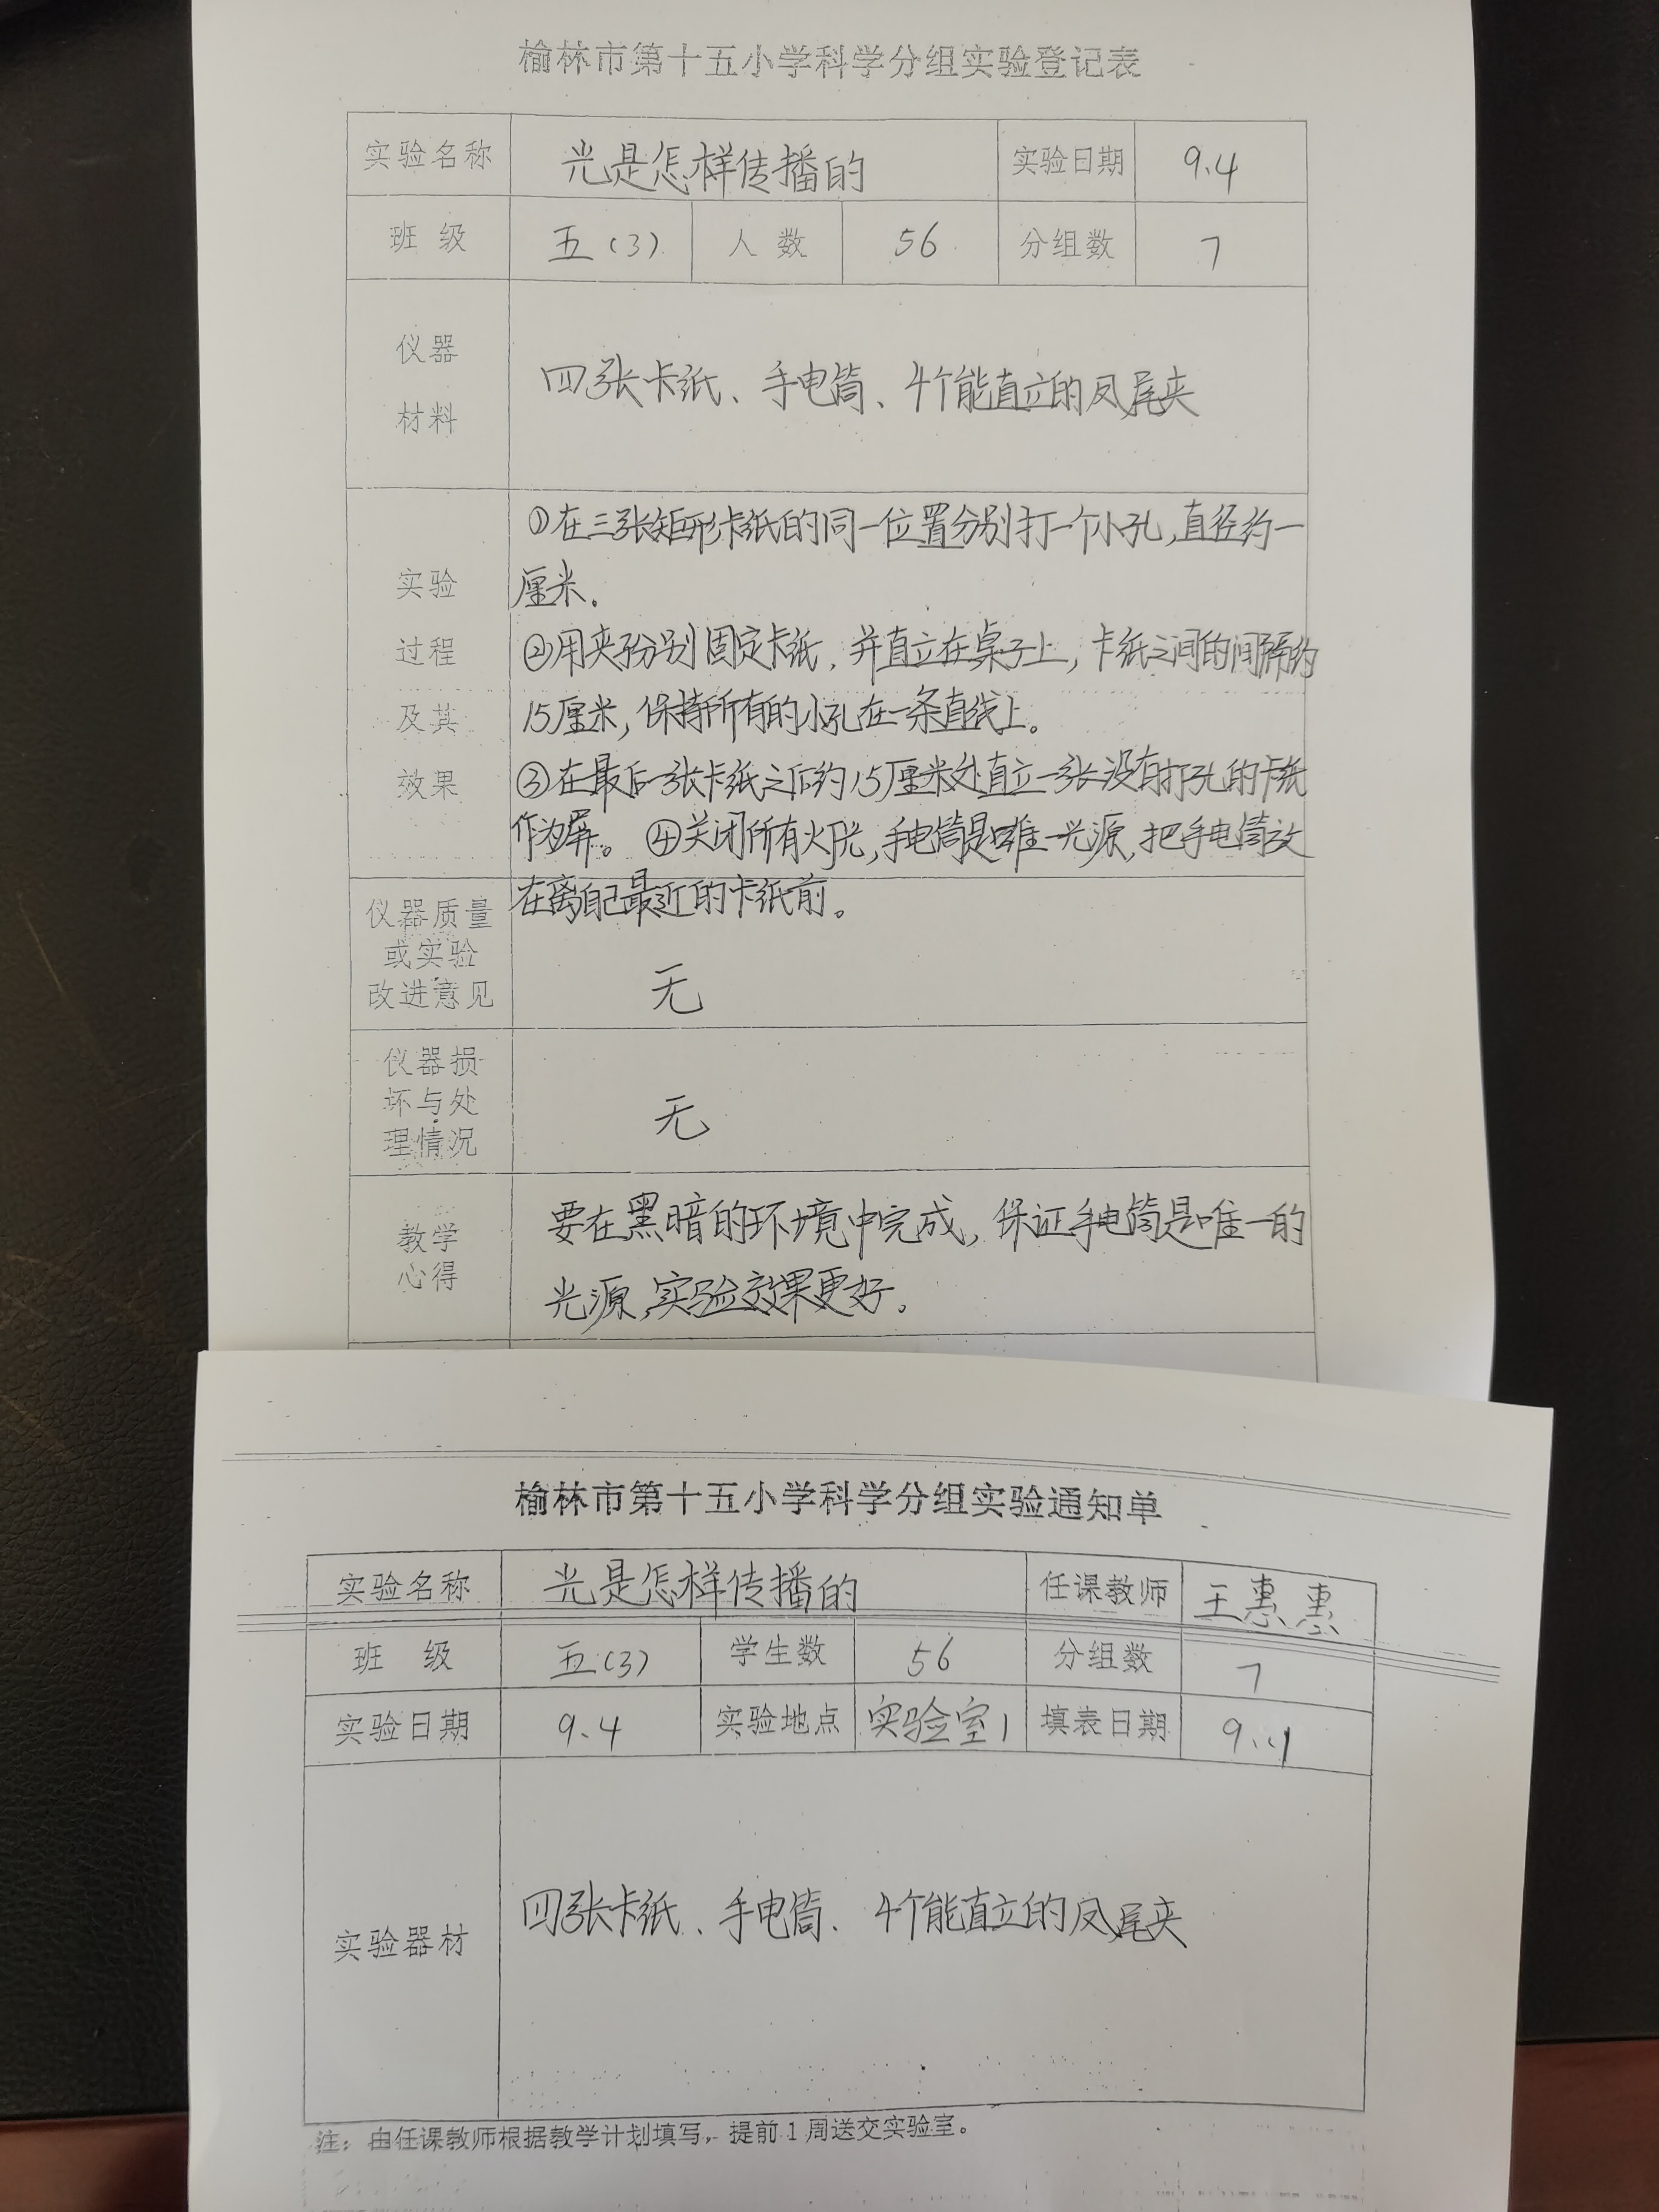 榆林市第十五小学科学分组实验登记表
实验名称 光是怎样传播的 实验日期 9.4
班 级 五(3) 人 数 56 分组数 7
仪器
材料
四张卡纸、手电筒、4个能直立的凤尾夹
实验
过程
及其
效果
①在三张矩形卡纸的同一位置分别打一个小孔,直径约一
厘米.
②用夹子分别固定卡纸,并直立在桌子上,卡纸之间的间隔约
15厘米,保持所有的小孔在一条直线上。
③在最后一张卡纸之后约15厘米处直立一张没有打孔的卡纸
作为屏。 ④关闭所有灯光,手电筒是唯一光源,把手电筒放
在离自己最近的卡纸前。
仪器质量
或实验
改进意见
无
仪器损
坏与处
理情况
无
教学
心得
要在黑暗的环境中完成,保证手电筒是唯一的
光源,实验效果更好。
榆林市第十五小学科学分组实验通知单
实验名称 光是怎样传播的 任课教师 王惠惠
班 级 五(3) 学生数 56 分组数 7
实验日期 9.4 实验地点 实验室1 填表日期
实验器材 四张卡纸、手电筒、4个能直立的凤尾夹
注:由任课教师根据教学计划填写,提前1周送交实验室。